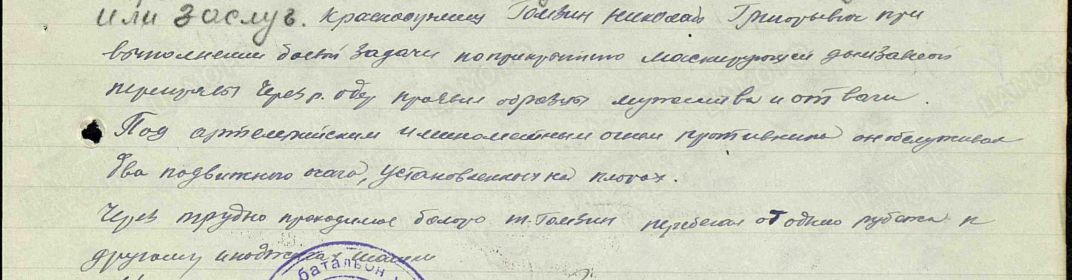 или заслуг. Красноармеец Гомзин Николай Григорьевич при
выполнении боевой задачи по прикрытию маскирующей дымзавесой
переправы через р. Одер проявил образцы мужества и отваги.
Под артелерийским и минометным огнем противника он обслуживал
два подвижного очага, установленных на плотах.
Через трудно проходимое болото т. Гомзин перебегал от одного рубежа к
другому
батальон